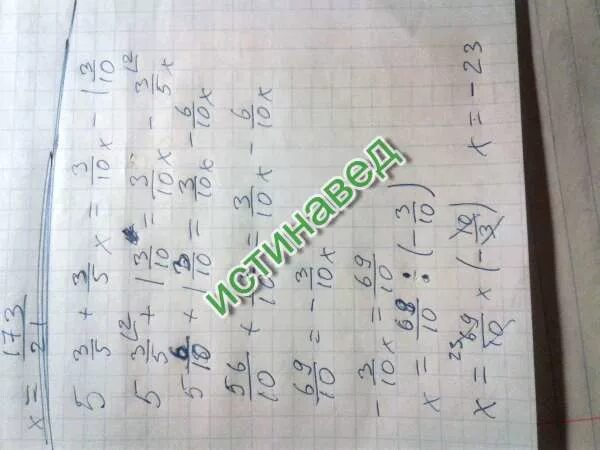 x = 173/21
5 3/5 + 3/5 x = 3/10 x - 1 3/10
5 3/5 + 1 3/10 = 3/10 x - 3/5 x
5 6/10 + 1 3/10 = 3/10 x - 6/10 x
56/10 + = 3/10 x - 6/10 x
69/10 = - 3/10 x
- 3/10 x = 69/10
x = 69/10 : (- 3/10)
x = 69/10 × (- 10/3) x = - 23
ИСТИНАВЕД